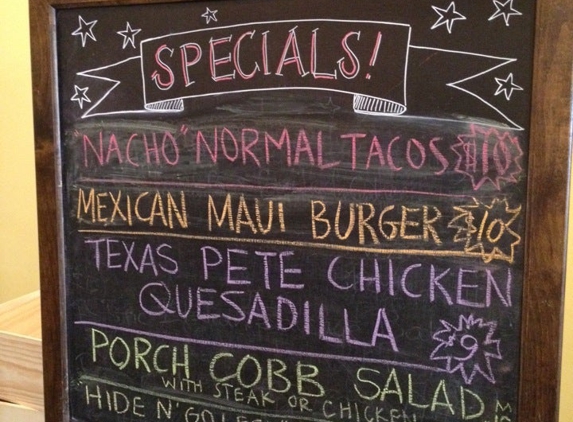 SPECIALS!
"NACHO" NORMAL TACOS $10
MEXICAN MAUI BURGER $10
TEXAS PETE CHICKEN
QUESADILLA $9
PORCH COBB SALAD
WITH STEAK OR CHICKEN
HIDE N' GO